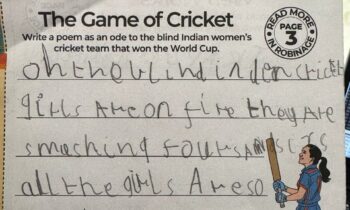 The Game of Cricket
Write a poem as an ode to the blind Indian women's
cricket team that won the World Cup.
READ MORE
PAGE
3
IN ROBINAGE
oh the blind inden crickt
girls Are on fire they Are
smashing fours And sixs
all the girls Are so